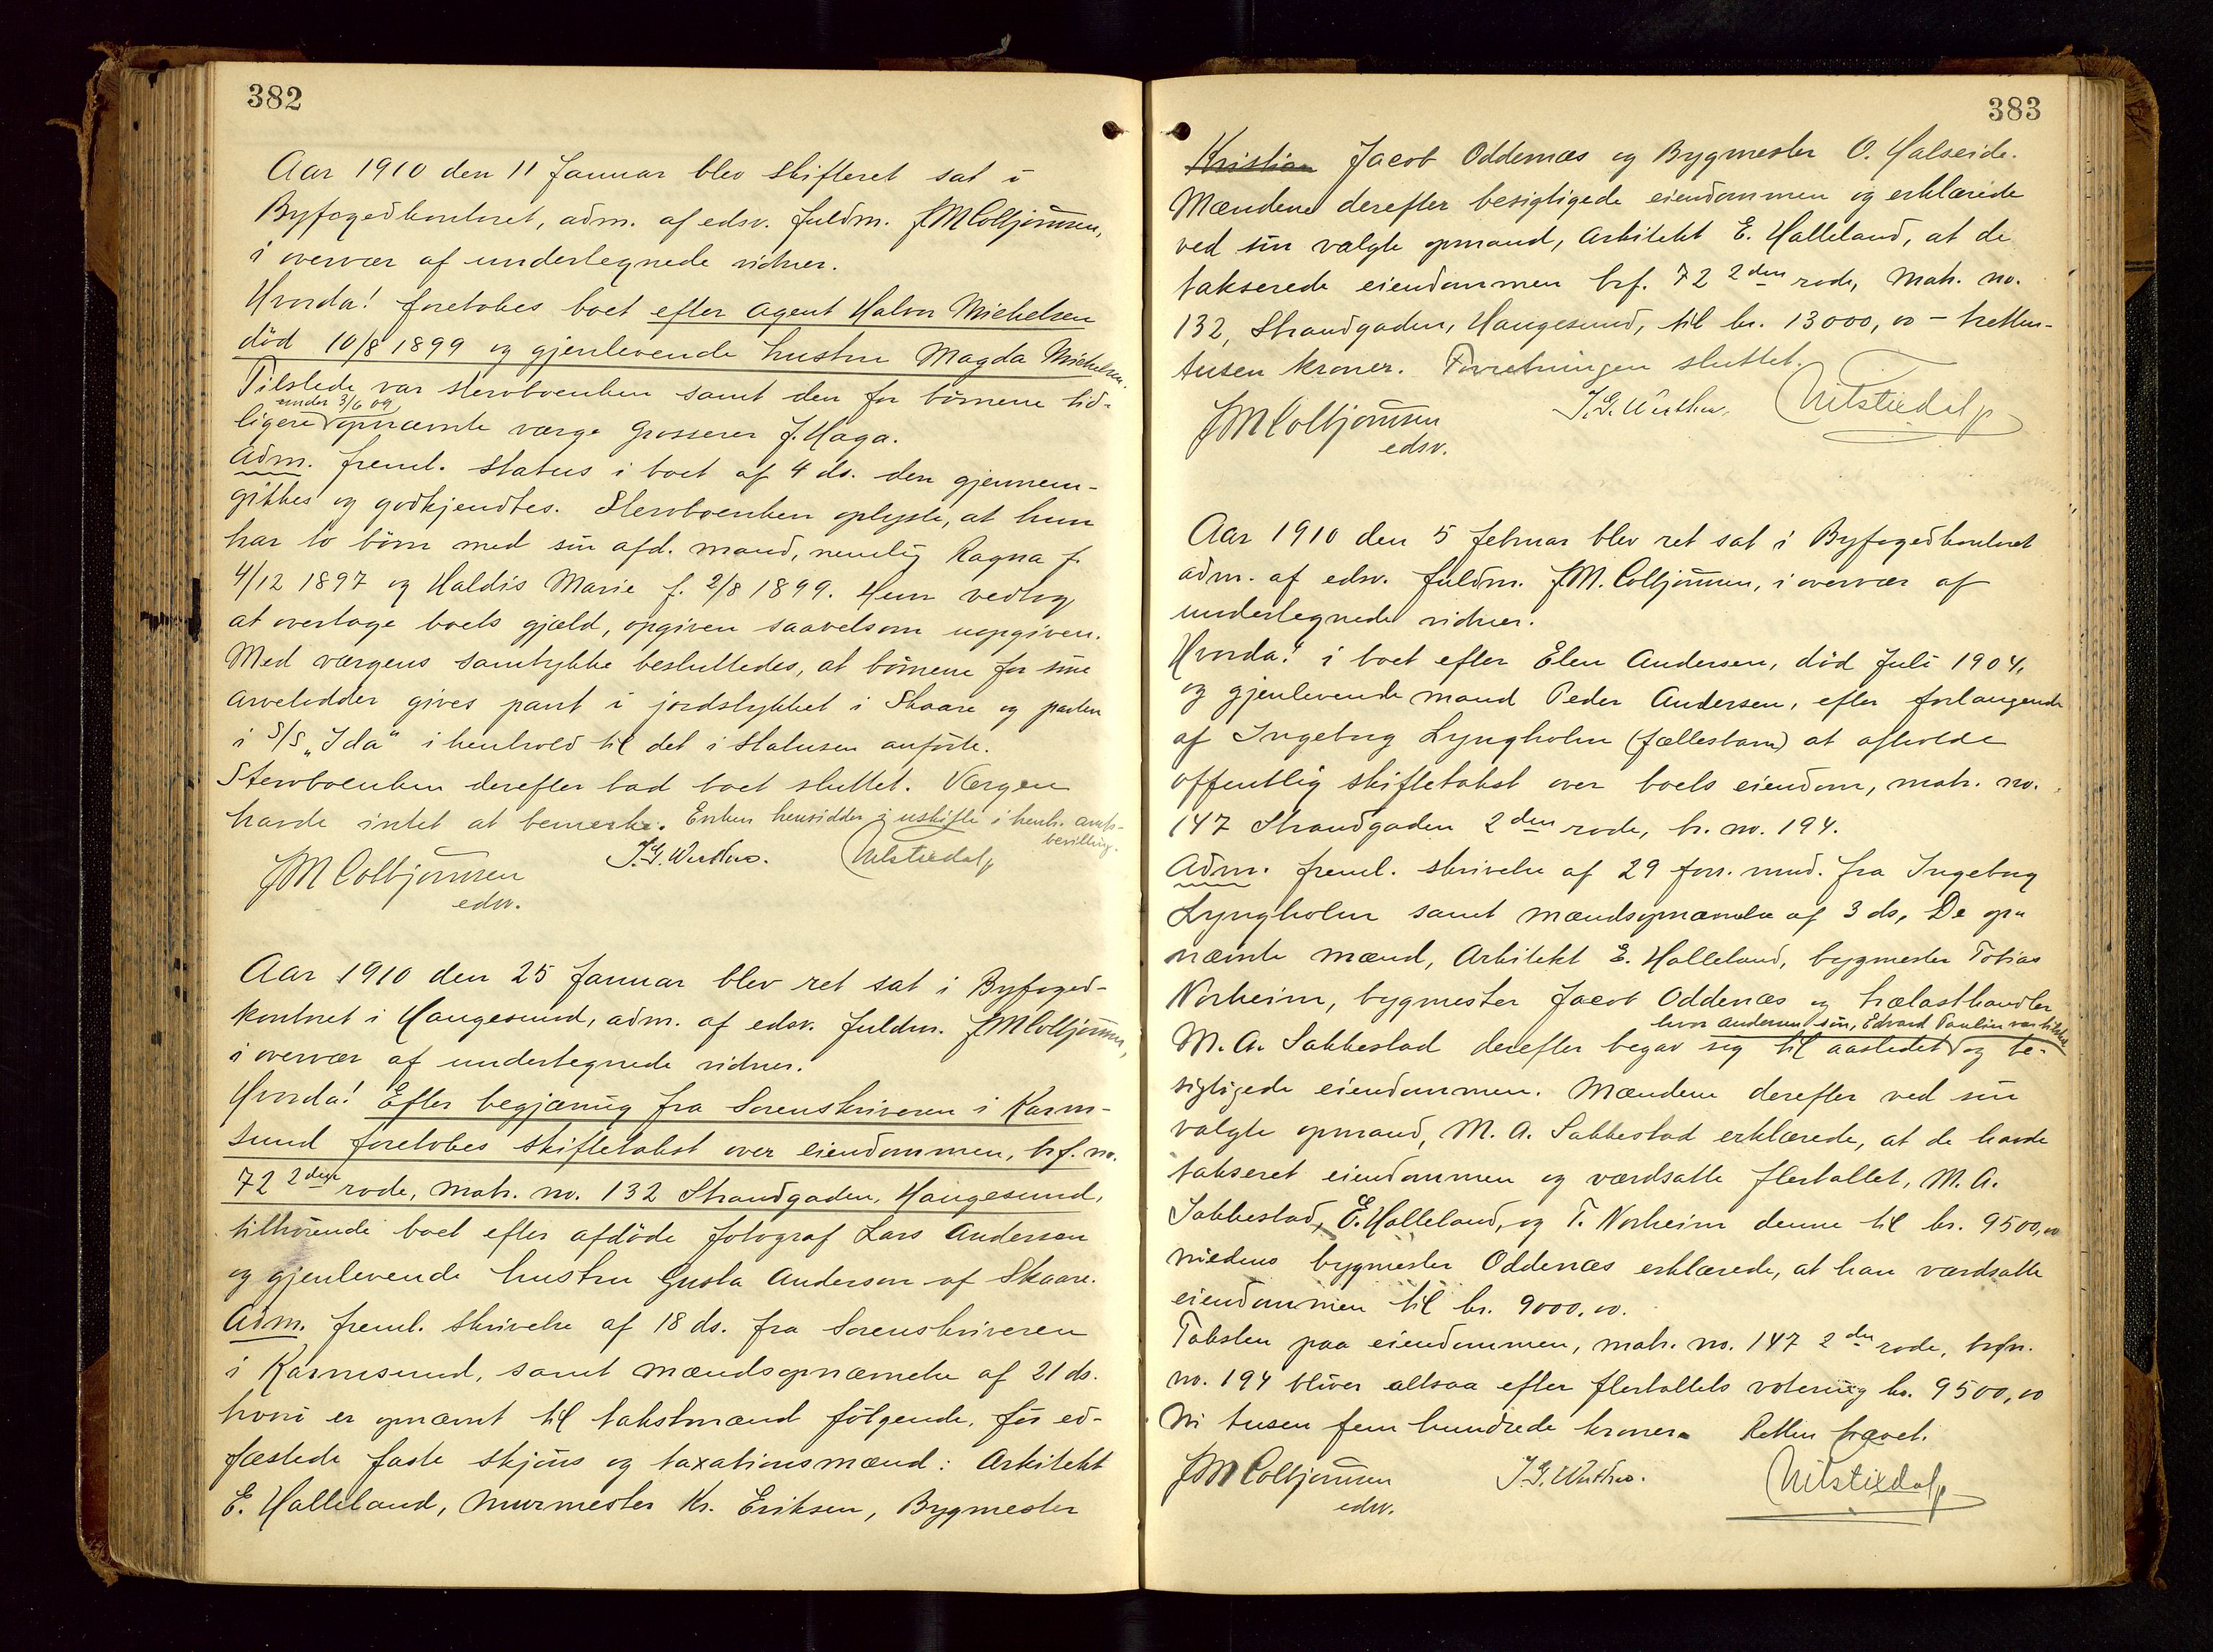 382
Aar 1910 den 11 Januar blev skifteret sat i
Byfogedkontoret, adm. af edsv. fuldm. JM Colbjørnsen,
i overvær af undertegnede vidner.
Hvorda! foretokes boet efter Agent Halvor Michelsen
död 10/8 1899 og gjenlevende hustru Magda Michelsen.
Tilstede var stervboenken samt den for börnene tid-
under 3/6 09
ligere opnævnte værge Grosserer J. Haga.
Adm. freml. status i boet af 4 ds. den gjennem-
gikkes og godkjendtes. Stervboenken oplyste, at hun
har to börn med sin afd. mand, nemlig Ragna f.
4/12 1897 og Haldis Marie f. 2/8 1899. Hun vedtog
at overtage boets gjæld, opgiven saavelsom uopgiven.
Med værgens samtykke besluttedes, at börnene for sine
arvelodder gives pant i jordstykket i Skaare og parten
i S/S „Ida" i henhold til det i statusen anförte.
Stervboenken derefter bad boet sluttet. Værgen
havde intet at bemerke. Enken hensidder i uskifte i henh. amts-
bevilling.
JM Colbjørnsen
edsv.
Aar 1910 den 25 Januar blev ret sat i Byfoged-
kontoret i Haugesund, adm. af edsv. fuldm. JM Colbjørnsen,
i overvær af undertegnede vidner.
Hvorda! Efter begjæring fra Sorenskriveren i Karm-
sund foretokes skiftetakst over eiendommen, brf. no.
72 2den rode, matr. no. 132 Strandgaden, Haugesund,
tilhörende boet efter afdöde fotograf Lars Andersen
og gjenlevende hustru Gusta Andersen af Skaare.
Adm. freml. skrivelse af 18 ds. fra Sorenskriveren
i Karmsund, samt mændsopnævnelse af 21 ds.
hvori er opnævnt til takstmænd fölgende, för ed-
fæstede faste skjöns og taxationsmænd: Arkitekt
E. Halleland, Murmester Kr. Eriksen, Bygmester
383
Kristian Jacob Oddenæs og Bygmester O. Halseide.
Mændene derefter besigtigede eiendommen og erklærede
ved sin valgte opmand, Arkitekt E. Halleland, at de
takserede eiendommen brf. 72 2den rode, Matr. no.
132, Strandgaden, Haugesund, til kr. 13000,00 – tretten-
tusen kroner. Forretningen sluttet.
JM Colbjørnsen
edsv.
Aar 1910 den 5 februar blev ret sat i Byfogedkontoret
adm. af edsv. fuldm. JM. Colbjørnsen, i overvær af
undertegnede vidner.
Hvorda! i boet efter Elen Andersen, död Juli 1904,
og gjenlevende mand Peder Andersen, efter forlangende
af Ingeborg Lyngholm (fællesbarn) at afholde
offentlig skiftetakst over boets eiendom, matr. no.
147 Strandgaden 2den rode, br. no. 194.
Adm. freml. skrivelse af 29 forr. mnd. fra Ingeborg
Lyngholm samt mændsopnævnelse af 3 ds. De op-
nævnte mænd, Arkitekt E. Halleland, bygmester Tobias
Norheim, bygmester Jacob Oddenæs og trælasthandler
hvor Andersens sön, Edvard Paulin var tilstede
M. A. Sakkestad derefter begav sig til aastedet og be-
sigtigede eiendommen. Mændene derefter ved sin
valgte opmand, M. A. Sakkestad erklærede, at de havde
takseret eiendommen og værdsatte flertallet, M. A.
Sakkestad, E. Halleland, og T. Norheim denne til kr. 9500,00
miedens bygmester Oddenæs erklærede, at han værdsatte
eiendommen til kr. 9000.00.
Taksten paa eiendommen, matr. no. 147 2den rode, brfr.
no. 194 bliver altsaa efter flertallets votering kr. 9500,00
Ni tusen fem hundrede kroner. Retten hævet.
JM Colbjørnsen
edsv.